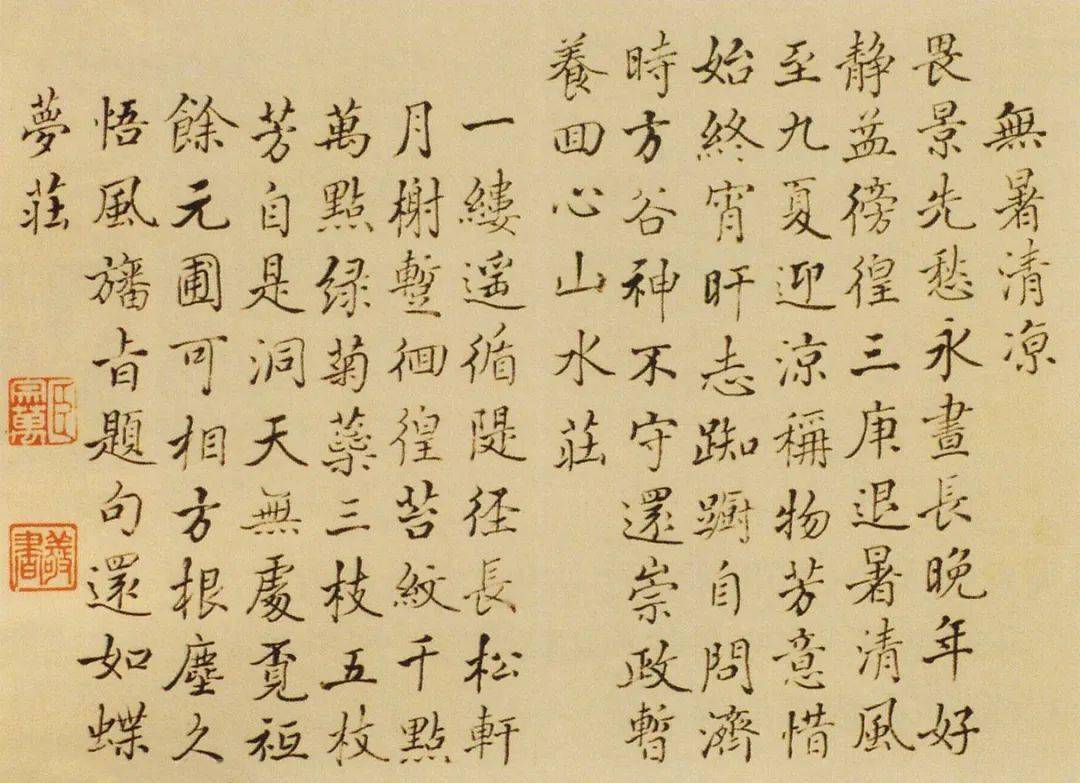 無暑清凉
畏景先愁永晝長晚年好
静益徬徨三庚退暑清風
至九夏迎涼稱物芳意惜
始終宵旰志踟躕自問濟
時方谷神不守還崇政暫
養回心山水莊
一縷遥循隄徑長松軒
月榭蹔徊徨苔紋千點
萬點緑菊蘂三枝五枝
芳自是洞天無處覓祗
餘元圃可相方根塵久
悟風旛旨題句還如蝶
夢莊
臣宗萬
敬書